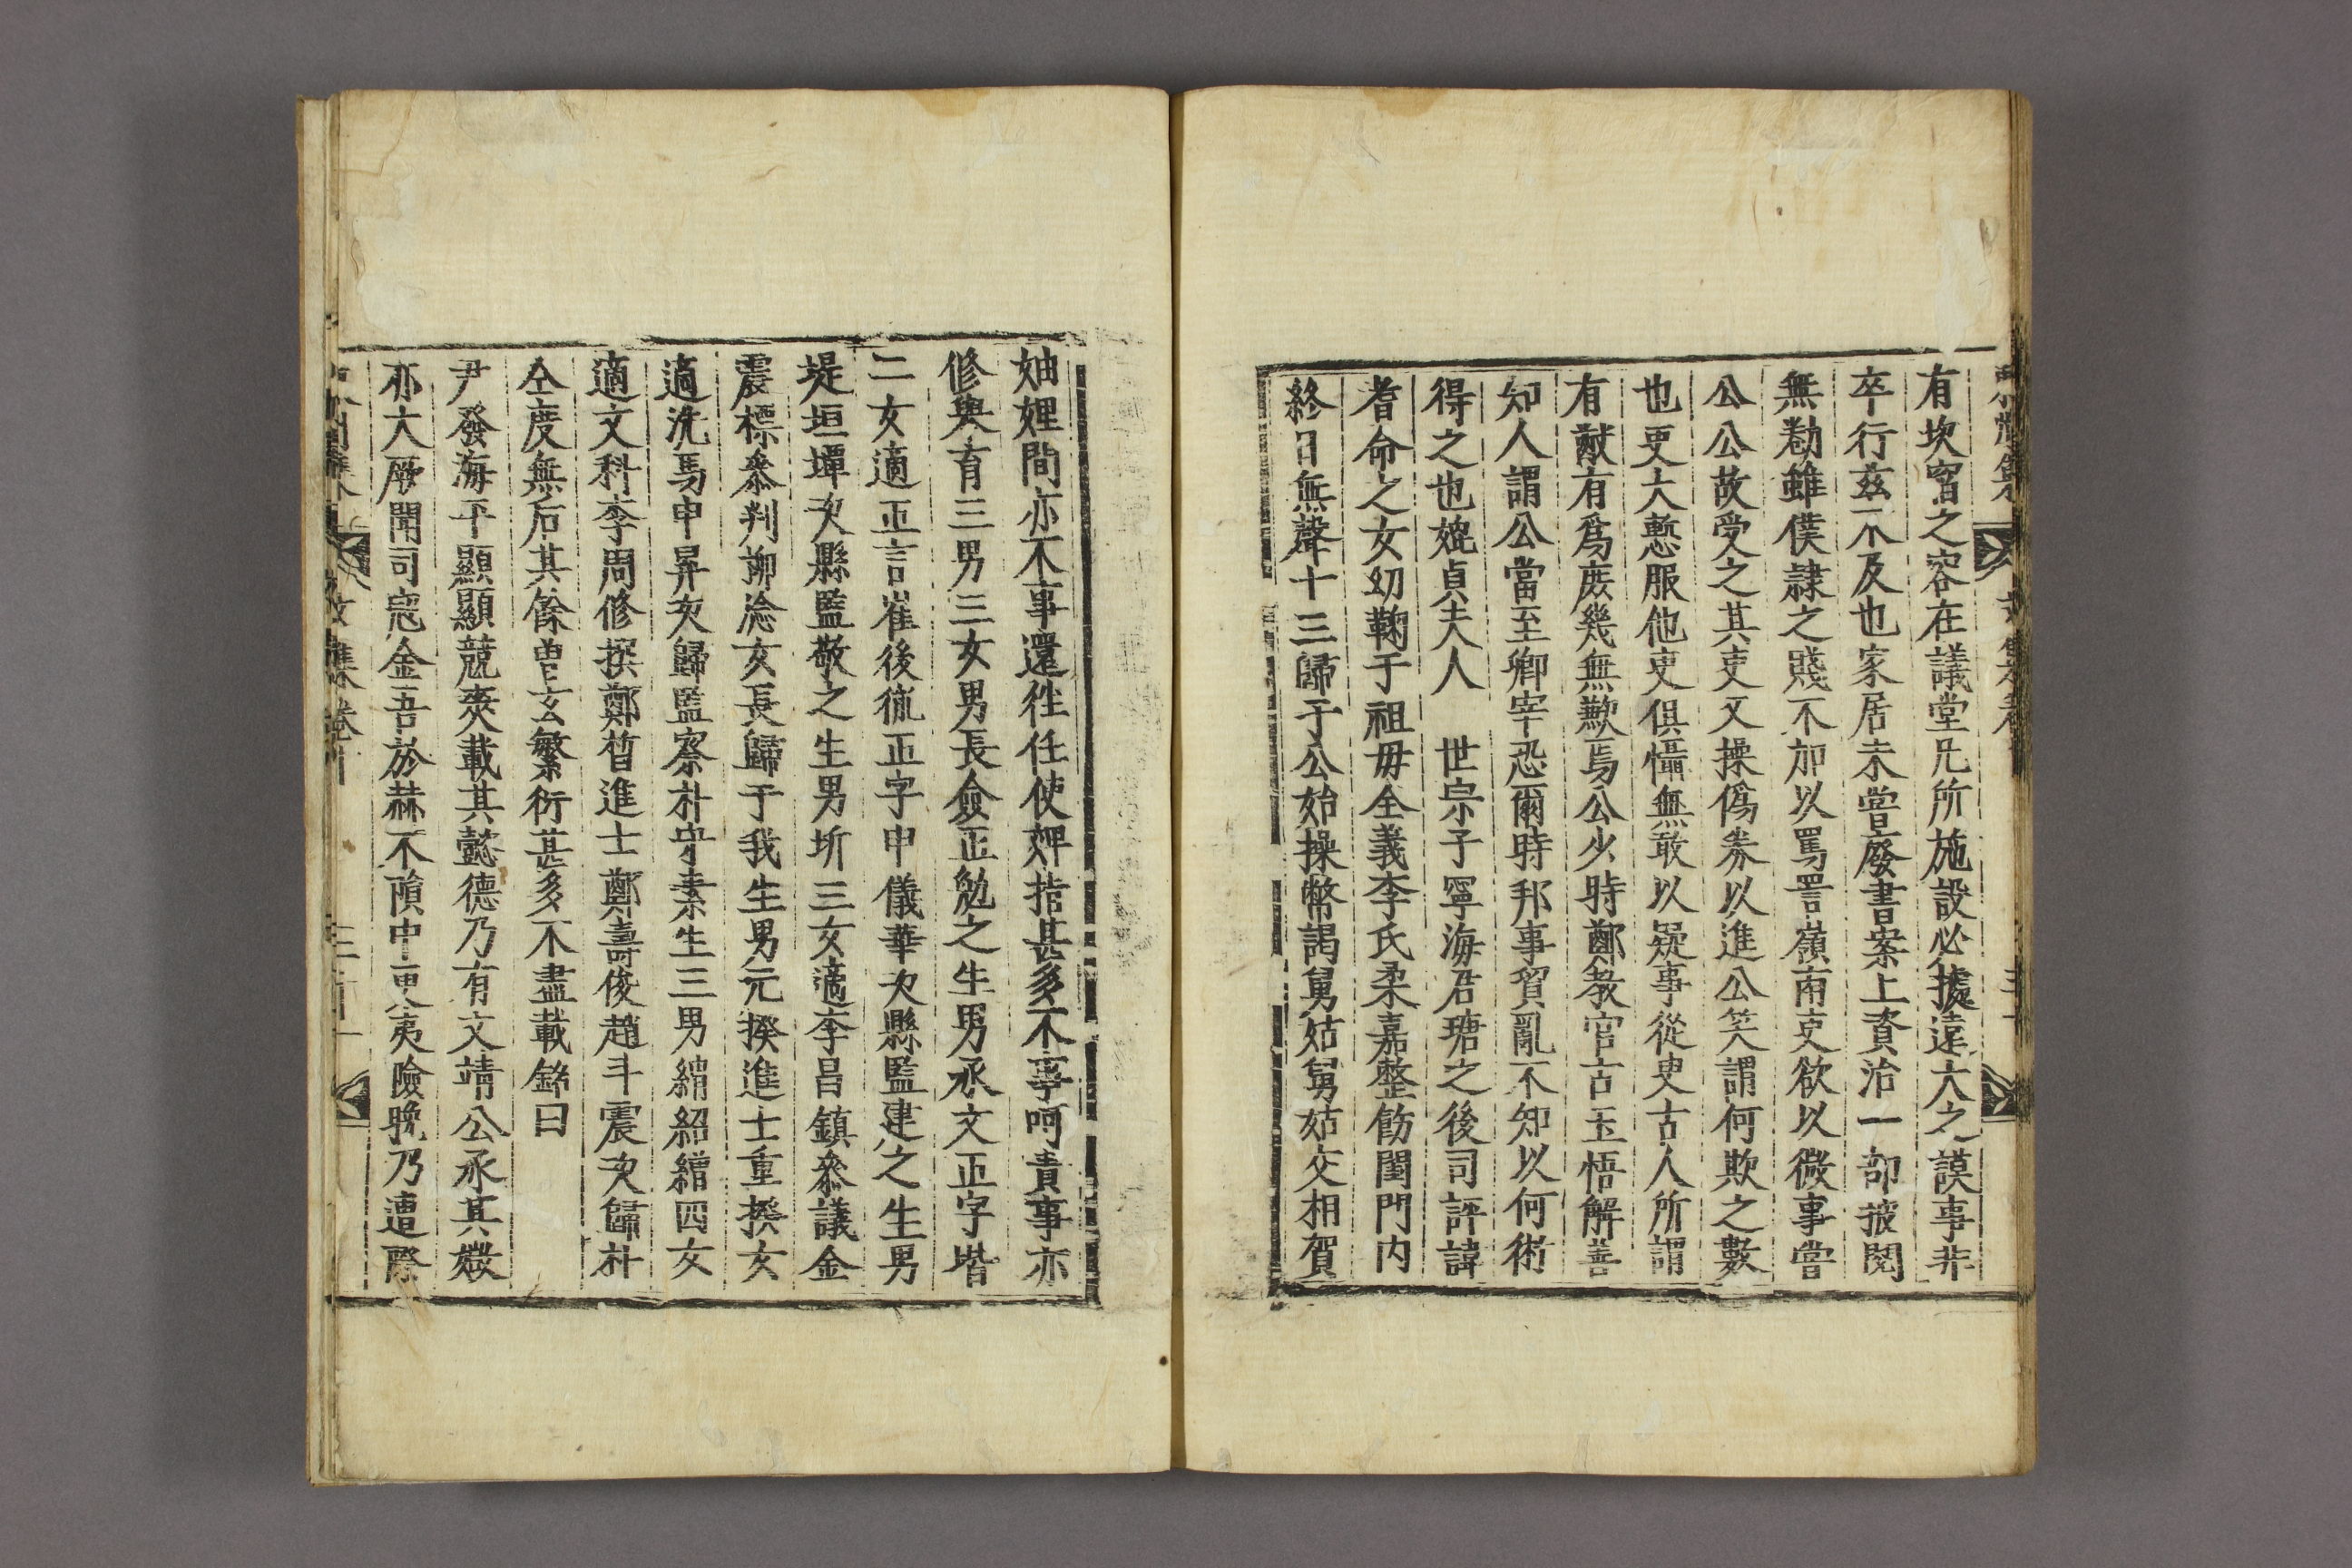 有坎窞之容在議堂凡所施設必據遠大之謨事非
卒行玆不及也家居未嘗廢書案上資治一部披閱
無勌雖僕隷之賤不加以罵詈嶺南吏欲以微事嘗
公公故受之其吏又操僞券以進公笑謂何欺之數
也吏大慙服他吏俱懾無敢以疑事從叟古人所謂
有猷有爲庶幾無歉焉公少時鄭敎官古玉悟解善
知人謂公當至卿宰恐爾時邦事貿亂不知以何術
得之也媲貞夫人 世宗子寧海君瑭之後司評諱
耆命之女幼鞠于祖母全義李氏柔嘉整飭閨門內
終日無聲十三歸于公始操幣謁舅姑舅姑交相賀
妯娌間亦不事還往任使婢指甚多不事呵責事亦
修與育三男三女男長僉正勉之生男承文正字堦
二女適正言崔後㣩正字申儀華次縣監建之生男
堤垣墠次縣監敬之生男圻三女適李呂鎭叅議金
震標叅判柳淰女長歸于我生男元揆進士重揆女
適洗馬申昇次歸監察朴守素生三男縜紹繒四女
適文科李周修撰鄭晳進士鄭壽俊趙斗震次歸朴
仝度無后其餘曾玄繁衍甚多不盡載銘曰
尹發海平顯顯兢爽載其懿德乃有文靖公承其媺
邳大厥聞司寇金吾於赫不隕中更夷險晩乃遭際